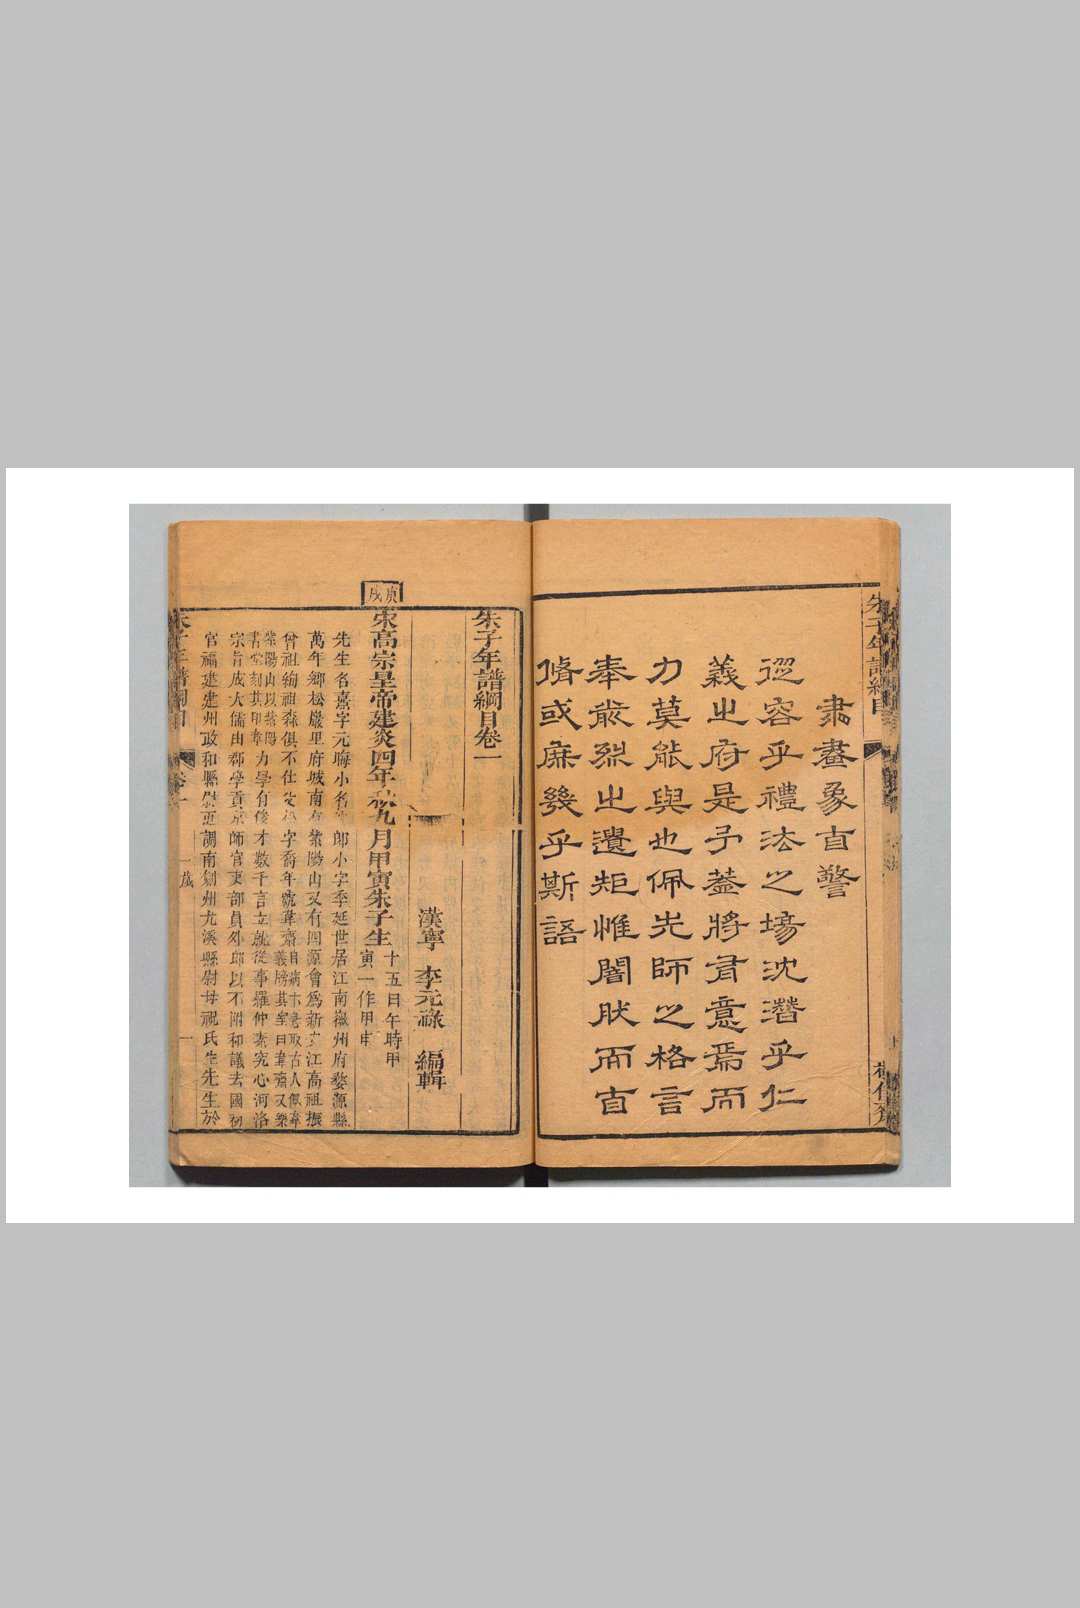 朱子年譜綱目
書畫象自警
從容乎禮法之場沈潛乎仁
義之府是予蓋將有意焉而
力莫能與也佩先師之格言
奉前烈之遺矩惟闇然而自
脩或庶幾乎斯語
朱子年譜綱目卷一
漢寧 李元祿 編輯
庚戌
宋高宗皇帝建炎四年秋九月甲寅朱子生
十五日午時甲
寅一作甲申
先生名熹字元晦小名郎小字季延世居江南徽州府婺源縣
萬年鄉松巖里府城南有紫陽山又有四源會為新安江高祖振
曾祖絢祖森俱不仕父松字喬年號韋齋
紫陽山以紫陽
書堂刻其印章
力學有俊才數千言立就從事羅仲素究心河洛
宗旨成大儒由郡學貢京師官吏部員外郎以不附和議去國初
官福建建州政和縣尉更調南劍州尤溪縣尉母祝氏生先生於
朱子年譜綱目
卷一
一歲
一